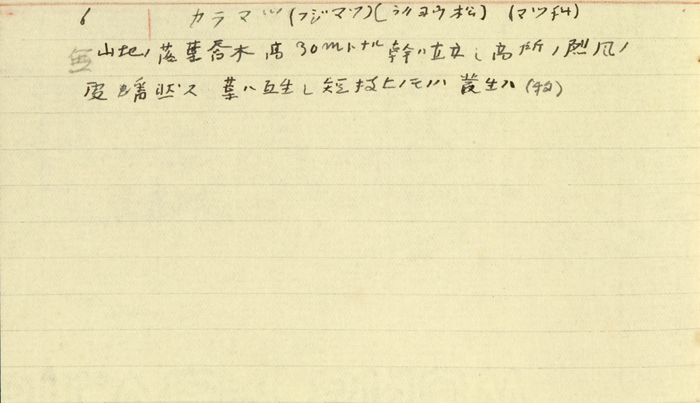 6 カラマツ(フジマツ)(ラクヨウ松) (マツ科)
無 山地ノ落葉喬木 高30mトナル 幹ハ直立シ高所ノ烈風ノ
葉ハ互生シ短枝上ノモノハ叢生ス (牧)